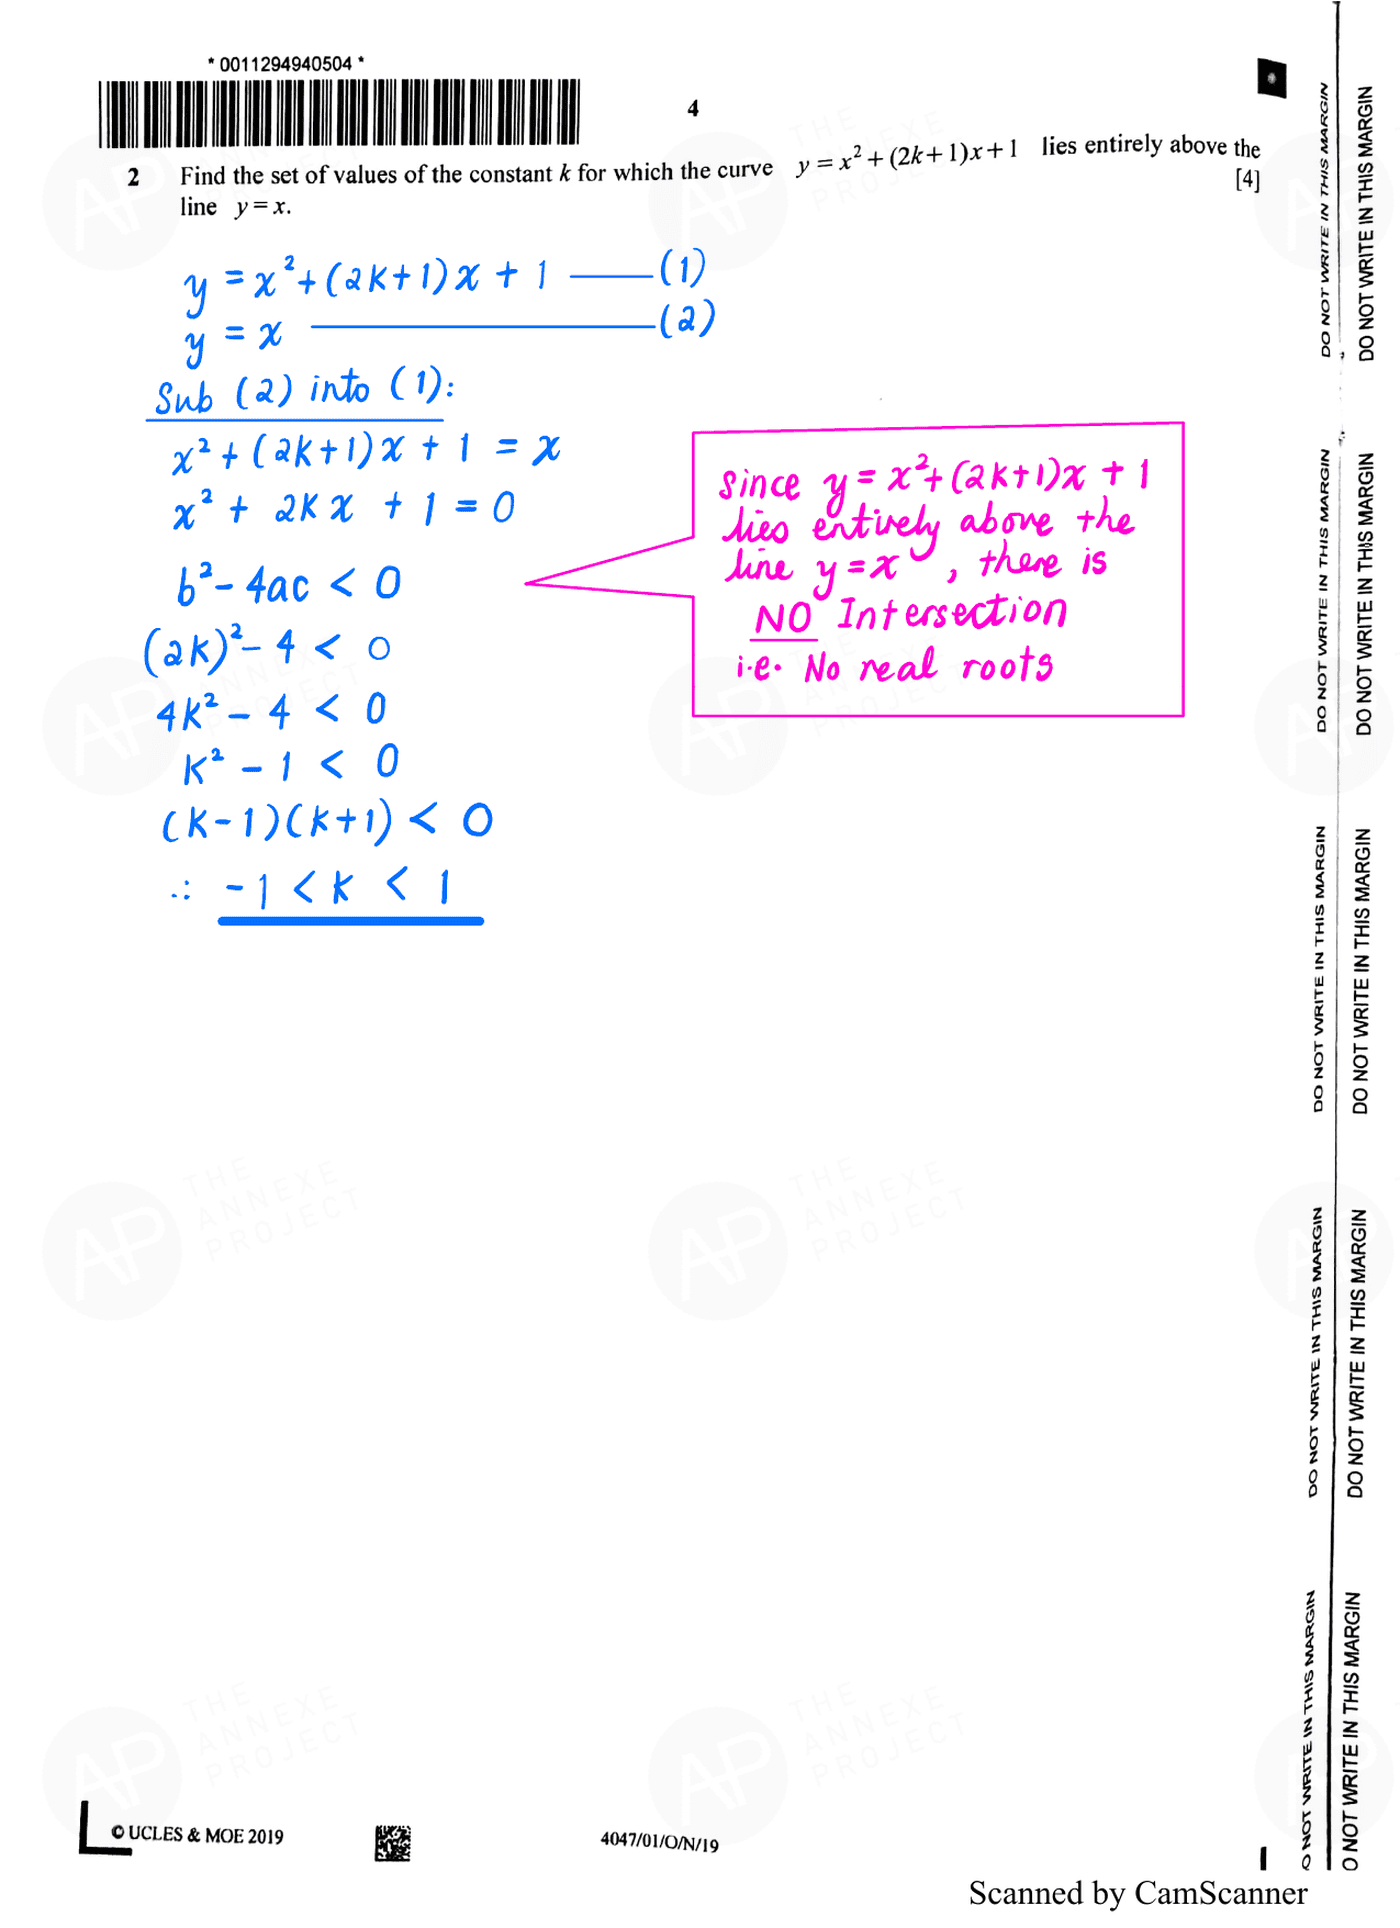 * 0011294940504 *
4
2 Find the set of values of the constant k for which the curve y = x² + (2k+1)x + 1 lies entirely above the
line y = x. [4]
y = x² + (2k+1)x + 1 —— (1)
y = x —————— (2)
Sub (2) into (1):
x² + (2k+1)x + 1 = x
x² + 2kx + 1 = 0
b² - 4ac < 0
(2k)² - 4 < 0
4k² - 4 < 0
k² - 1 < 0
(k-1)(k+1) < 0
∴ -1 < k < 1
Since y = x² + (2k+1)x + 1
lies entirely above the
line y = x, there is
NO Intersection
i.e. No real roots
DO NOT WRITE IN THIS MARGIN
DO NOT WRITE IN THIS MARGIN
DO NOT WRITE IN THIS MARGIN
DO NOT WRITE IN THIS MARGIN
DO NOT WRITE IN THIS MARGIN
DO NOT WRITE IN THIS MARGIN
DO NOT WRITE IN THIS MARGIN
DO NOT WRITE IN THIS MARGIN
O NOT WRITE IN THIS MARGIN
O NOT WRITE IN THIS MARGIN
AP THE ANNEXE PROJECT
© UCLES & MOE 2019
4047/01/O/N/19
Scanned by CamScanner